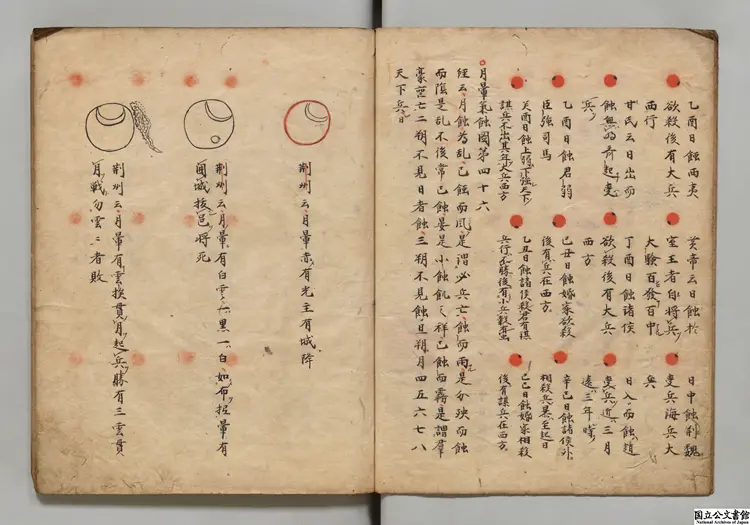 乙酉日蝕兩夷
欲殺後有大兵
西行
甘氏云日出而
蝕無 起变
兵
乙酉日蝕君弱
臣強司馬
癸酉日蝕上弱下強天下
謀兵不出其年大兵西方
黃帝云日蝕於
室王者自將兵
大驗百發百中
丁酉日蝕諸侯
欲殺後有大兵
西方
己丑日蝕婚家欲殺
後有兵在西方
乙丑日蝕諸侯殺君有謀
兵行武勝後有小兵穀有虫
日中蝕荊魏
变兵海兵大
兵
日入而蝕趙
变兵近三月
遠三年時
辛巳日蝕諸侯外
相殺兵畏至起日
己巳日蝕婚家相殺
後有謀兵在西方
月暈氣蝕圖第四十六
經云月蝕為乱已蝕而風是謂必兵亡蝕而雨是分殃而蝕
而陰是乱不復常已蝕晏是小蝕飢之祥已蝕而霧是謂羣
豪 亡二朔不見日者蝕三朔不見蝕且朔月四五六七八
天下兵日
荊州云月暈赤有光主有城降
荊州云月暈有白雲二六黑一白如布抵暈有
圍城拔邑將死
荊州云月暈有雲挨貫月起兵勝有三雲貫
月戰勿雲二者敗
国立公文書館
National Archives of Japan